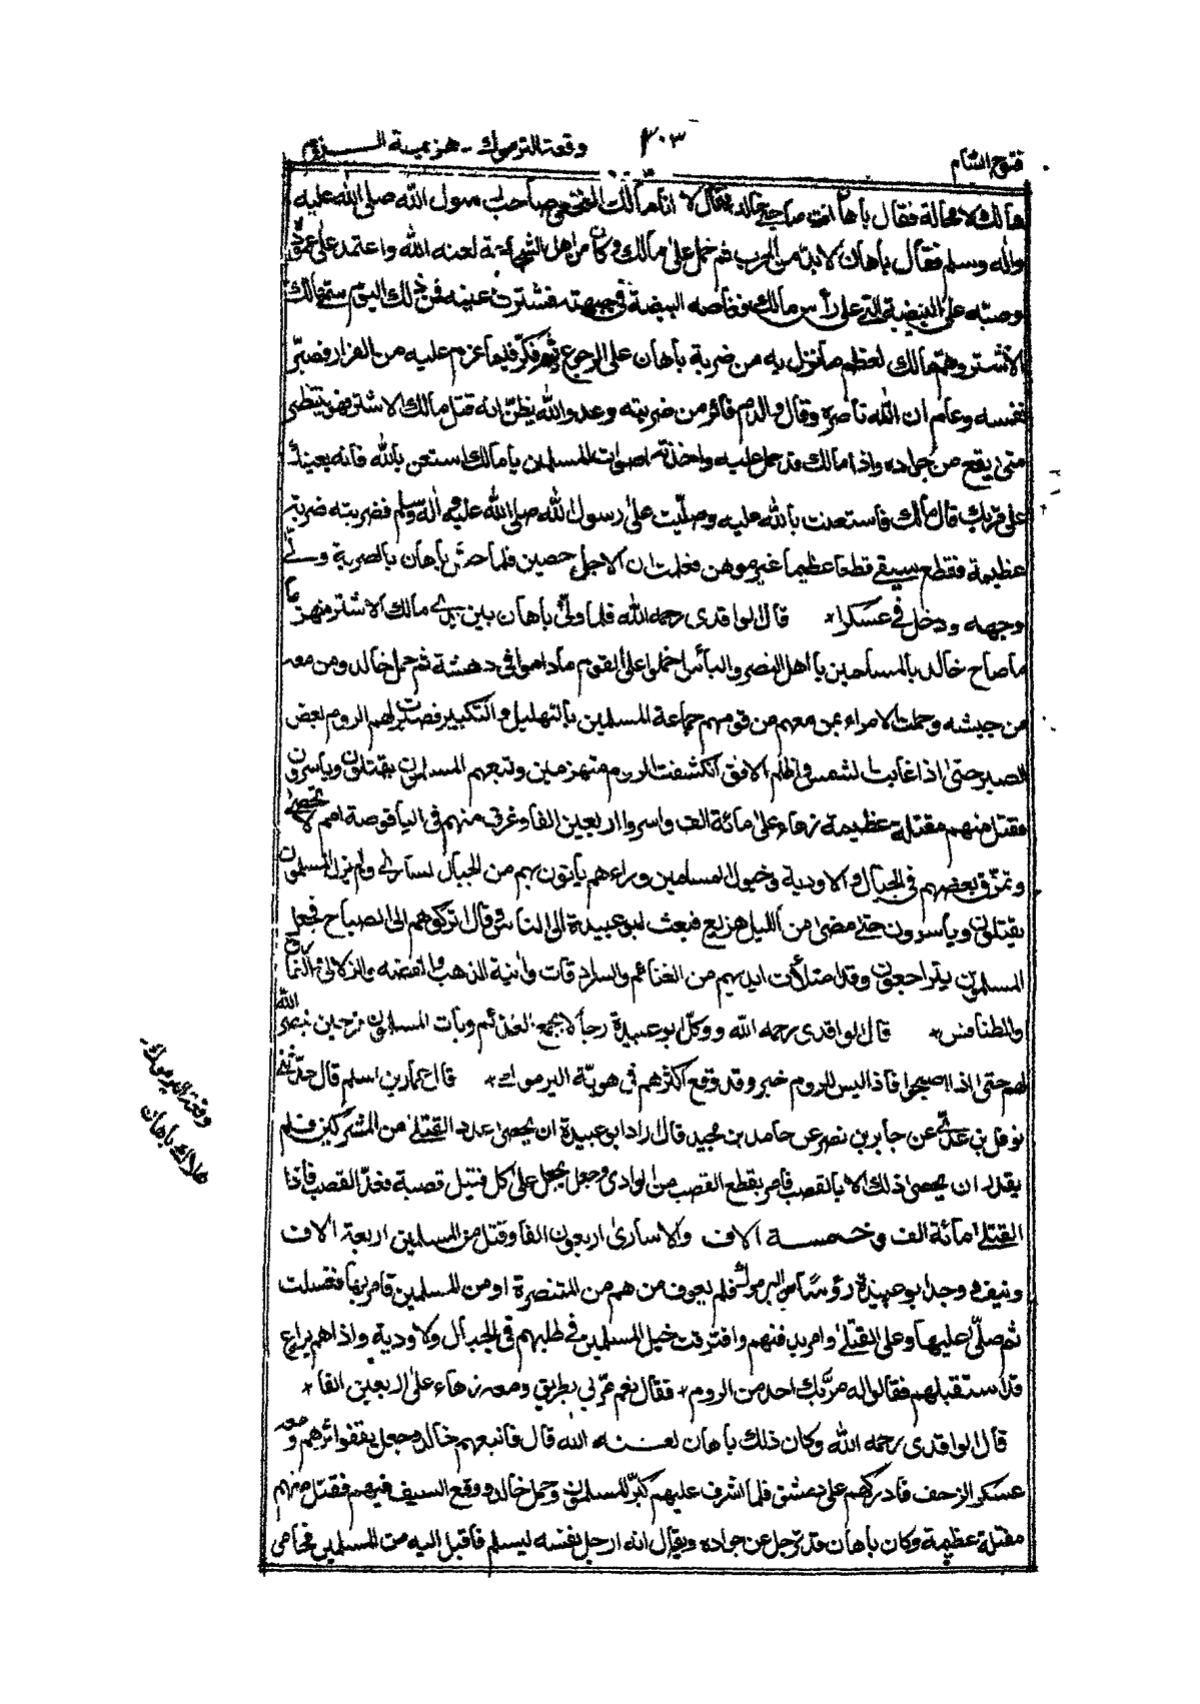 فتوح الشام
٣٠٣
وقعة اليرموك - هزيمة الروم
هالك لا محالة فقال باهان انت صاحبي خالد فقال لا انا مالك النخعي صاحب رسول الله صلى الله عليه
واله وسلم فقال باهان لا بد من الحرب ثم حمل على مالك وكان من اهل الشجاعة لعنه الله واعتمد على عموده
وضربه على البيضة التي على رأس مالك فغاصه البيضة في جبهته فشترت عينيه فمن ذلك اليوم سمي مالك
الاشتر وهم مالك لعظم ما نزل به من ضربة باهان على الرجوع ثم فكر فيما عزم عليه من الفرار فصبر
نفسه وعلم ان الله ناصره وقال والدم فائر من ضربته وعدو الله يظن انه قتل مالك الاشتر فهو ينتظر
متى يقع من جواده واذا مالك قد حمل عليه واخذته اصوات المسلمين يا مالك استعن بالله فانه يعينك
على قربك قال مالك فاستعنت بالله عليه وصليت على رسول الله صلى الله عليه واله وسلم فضربته ضربة
عظيمة فقطع سيفي قطعا عظيما غير موهن فعلمت ان الاجل حصين فلما حس باهان بالضربة ولى
وجهه ودخل في عسكره * قال الواقدي رحمه الله فلما ولى باهان بين يدي مالك الاشتر منهزما
ما صاح خالد بالمسلمين يا اهل النصر والبأس احملوا على القوم ما داموا في دهشة ثم حمل خالد ومن معه
من جيشه وحملت الامراء بمن معهم من قومهم جماعة المسلمين بالتهليل والتكبير فصبرت لهم الروم بعض
الصبر حتى اذا غابت الشمس واظلم الافق انكشفت الروم منهزمين وتبعهم المسلمون يقتلون وياسرون
فقتل منهم مقتلة عظيمة زهاء على مائة الف واسروا اربعين الفا وغرق منهم في الياقوصة امم لا تحصى
وتمزق بعضهم في الجبال والاودية وخيول المسلمين وراءهم ياتون بهم من الجبال اسارى ولم يزل المسلمون
يقتلون وياسرون حتى مضى من الليل هزيع فبعث ابو عبيدة الى الناس وقال اتركوهم الى الصباح فجعل
المسلمون يتراجعون وقد امتلأت ايديهم من الغنائم والسرادقات وانية الذهب والفضة والزلالي والنمارق
والطنافس * قال الواقدي رحمه الله ووكل ابو عبيدة رجالا بجمع الغنائم وبات المسلمون فرحين بنصر الله
لهم حتى اذا اصبحوا فاذا ليس للروم خبر وقد وقع اكثرهم في هوية اليرموك * قال عمار بن اسلم قال حدثني
نوفل بن عدي عن جابر بن نصر عن حامد بن مجيد قال اراد ابو عبيدة ان يحصى عدد القتلى من المشركين فلم
يقدر ان يحصى ذلك الا بالقصب فامر بقطع القصب من الوادى وجعل يجعل على كل قتيل قصبة فعد القصب فاذا
القتلى مائة الف وخمسة الاف والاسارى اربعون الفا وقتل من المسلمين اربعة الاف
ونيف ووجد ابو عبيدة رؤسا من اليرموك فلم يعرف من هم من المتنصرة او من المسلمين فامر بها فغسلت
ثم صلى عليها وعلى القتلى وامر بدفنهم وافترقت خيل المسلمين في طلبهم في الجبال والاودية واذا هم براع
قد استقبلهم فقالوا له مر بك احد من الروم * فقال نعم مر بي بطريق ومعه زهاء على اربعين الفا *
قال الواقدي رحمه الله وكان ذلك باهان لعنه الله قال فاتبعهم خالد وجعل يقفوا اثرهم ومعه
عسكر الزحف فادركهم على دمشق فلما اشرف عليهم كبر المسلمون وحمل خالد ووقع السيف فيهم فقتل منهم
مقتلة عظيمة وكان باهان قد ترجل عن جواده ويقال انه ارجل نفسه ليسلم فاقبل اليه من المسلمين فحامى
وقعة اليرموك
هلاك باهان